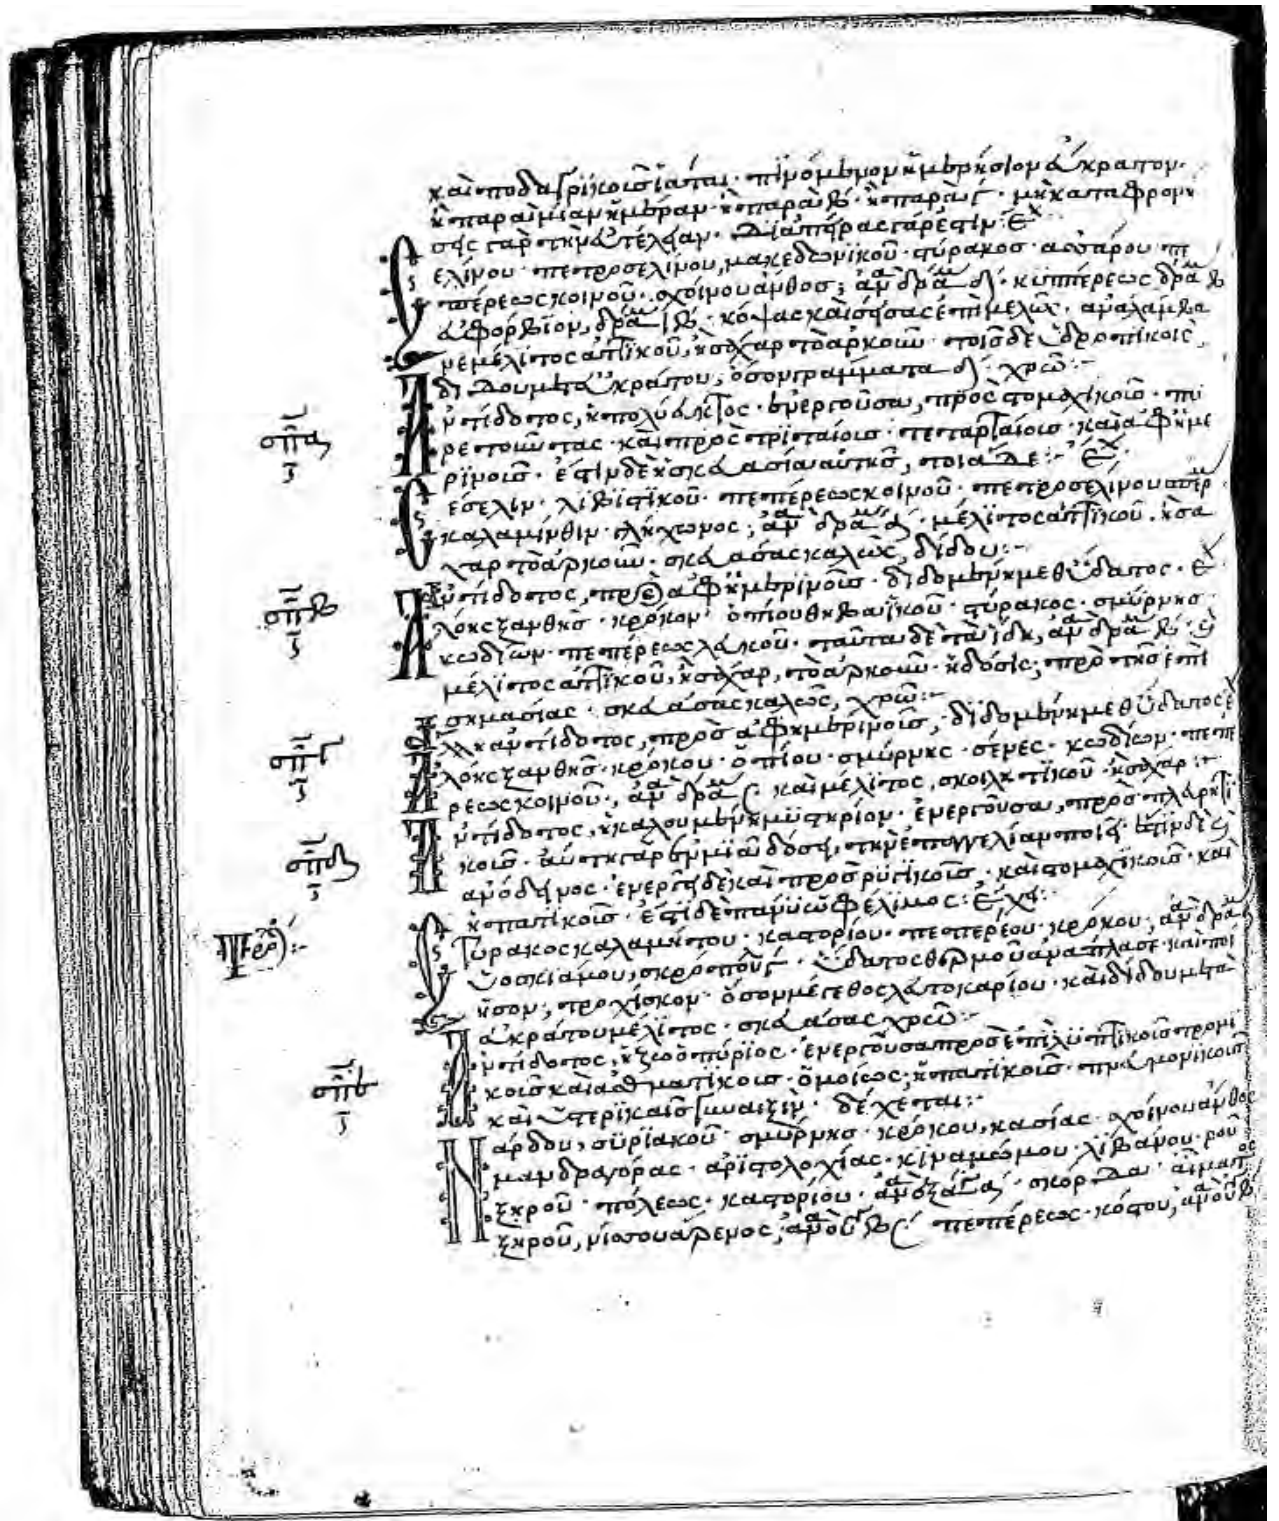 καὶ ποδαγρικοῖς ἰᾶται· πινόμενον ἡμερήσιον ἄκρατον·
ἢ παρὰ μίαν ἡμέραν· ἢ παρὰ β· ἢ παρὰ γ· μὴ καταφρονή
σῃς γὰρ τὴν εὐτέλειαν· διὰ πείρας γάρ ἐστιν· ἔχ
Σελίνου· πετροσελίνου μακεδωνικοῦ· στύρακος· ἀσάρου· πε
πέρεως κοινοῦ· σχοίνου ἄνθος· ἀν δραμ δ· κυππέρεως δραμ β
εὐφόρβιον, δραμ β· κόψας καὶ σήσας ἐπιμελῶς· ἀναλάμβα
νε μέλιτος ἀττικοῦ, ἢ σάχαρ τὸ ἀρκοῦν· τοῖς δὲ ὑδροπικοῖς
δίδου μετὰ εὐκράτου, ὅσον γράμματα δ· χρῶ:
σπα
Ἀντίδοτος, ἡ πολύδεκτος· ἐνεργοῦσα, πρὸς στομαχικοὺς· πυ
ρέττοντας· καὶ πρὸς τριταίοις· τεταρταίοις· καὶ ἀφημε
ρινοῖς· ἔστιν δὲ ἡ σκευασία αὐτῆς, τοιάδε: ἔχ
Σέσελιν· λιβιστικοῦ· πεπέρεως κοινοῦ· πετροσελίνου σπέρ
καλαμίνθιν· γλήχωνος· ἀν δραμ δ· μέλιτος ἀττικοῦ· ἢ σα
χαρ τὸ ἀρκοῦν· σκευάσας καλῶς, δίδου:
σπβ
Ἀντίδοτος, πρὸς ἀφημερινοῖς· διδομένη μεθ' ὕδατος· ἔχ
Ἀλόης ξανθῆς· κρόκον· ὀπίου θηβαϊκοῦ· στύρακος· σμύρνης·
κωδίων· πεπέρεως λευκοῦ· ταῦτα δὲ τὰ εἴδη, ἀν δραμ β·
μέλιτος ἀττικοῦ, ἢ σάχαρ, τὸ ἀρκοῦν· ἡ δόσις, πρὸ τῆς ἐπι
σημασίας· σκευάσας καλῶς, χρῶ:
σπγ
Ἄλλη ἀντίδοτος, πρὸς ἀφημερινοῖς, διδομένη μεθ' ὕδατος ἔχ
Ἀλόης ξανθῆς· κρόκου· ὀπίου· σμύρνης· κωδίων· πεπέ
ρεως κοινοῦ, ἀν δραμ ϛ· καὶ μέλιτος, ἢ σάχαρ:
σπδ
Ἀντίδοτος, ἡ καλουμένη μυστήριον· ἐνεργοῦσα, πρὸς πλευρητι
κοῖς· αὕτη γὰρ ἐν μιᾷ δόσει, τὴν ἐπαγγελίαν ποιεῖ· ἔστιν δὲ
ἀνόδυνος· ἐνεργεῖ δὲ καὶ πρὸς· καὶ στομαχικοῖς· καὶ
ἡπατικοῖς· ἔστι δὲ πάνυ ὠφέλιμος: ἔχει:
Στύρακος καλαμήτου· καστορίου· πεπέρεου· κρόκου, ἀν δραμ
ὑοσκιάμου, ὕδατος θερμοῦ ἀνάπλασε· καὶ ποί
ησον, τροχίσκον· ὅσον μέγεθος λεπτοκαρίου· καὶ δίδου μετὰ
εὐκράτου μέλιτος· σκευάσας χρῶ:
σπε
Ἀντίδοτος, ἡ ζωόπυριος· ἐνεργοῦσα πρὸς ἐπιληπτικοῖς τρομι
κοῖς καὶ ἀσθματικοῖς· ὁμοίως, ἡπατικοῖς· πνευμονικοῖς
καὶ ὑστερικαῖς γυναιξὶν· δέχεται:
Νάρδου, συριακοῦ· σμύρνης· κρόκου, κασίας· σχοίνου ἄνθος
μανδραγόρας· ἀριστολοχίας· κιναμώμου· λιβάνου· ῥοῦ
ξηροῦ· πόλεως· καστορίου· ἀν ἐξάγια
ξηροῦ, πεπέρεως· κόστου, ἀν